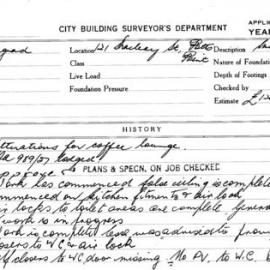 CITY BUILDING SURVEYOR'S DEPARTMENT
APPLI
YEAR
Location 121 Macleay St, Description
Class Point Nature of Foundation
Live Load Depth of Footings
Foundation Pressure Checked by
Estimate £
HISTORY
for coffee lounge.
989/57 lodged
PLANS & SPECN, ON JOB CHECKED
Work has commenced false ceiling is complete
commenced on kitchen fitments & air lock
air locks to toilet areas are complete general
work is in progress
Work is complete less
closers to W.C. & air lock
closers to W.C. door missing. No P.V. to W.C. B